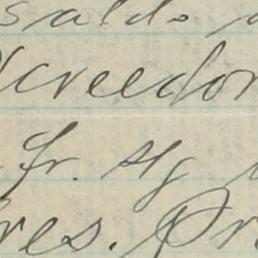 saldo
Acreedor
fr. s/g
res. Pr